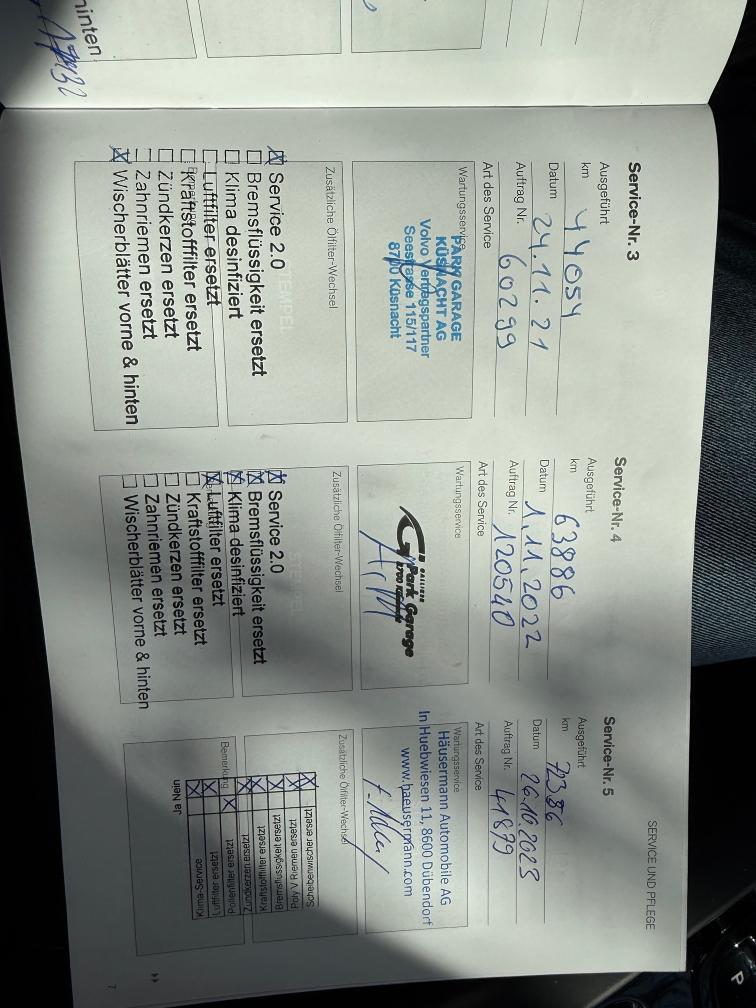 hinten
SERVICE UND PFLEGE
Service-Nr. 3
Ausgeführt
km 44054
Datum 24.11.21
Auftrag Nr. 60299
Art des Service
Wartungsservice
PARK GARAGE
KÜSNACHT AG
Volvo Vertragspartner
Seestrasse 115/117
8700 Küsnacht
Zusätzliche Ölfilter-Wechsel
STEMPEL
☒ Service 2.0
☐ Bremsflüssigkeit ersetzt
☐ Klima desinfiziert
☐ Luftfilter ersetzt
☐ Kraftstofffilter ersetzt
☐ Zündkerzen ersetzt
☐ Zahnriemen ersetzt
☒ Wischerblätter vorne & hinten
Service-Nr. 4
Ausgeführt
km 63886
Datum 1.11.2022
Auftrag Nr. 120540
Art des Service
Wartungsservice
Park Garage
Zusätzliche Ölfilter-Wechsel
☒ Service 2.0
☒ Bremsflüssigkeit ersetzt
☒ Klima desinfiziert
☒ Luftfilter ersetzt
☐ Kraftstofffilter ersetzt
☐ Zündkerzen ersetzt
☐ Zahnriemen ersetzt
☐ Wischerblätter vorne & hinten
Service-Nr. 5
Ausgeführt
km 72386
Datum 26.10.2023
Auftrag Nr. 41879
Art des Service
Wartungsservice
Häusermann Automobile AG
In Huebwiesen 11, 8600 Dübendorf
www.haeusermann.com
Zusätzliche Ölfilter-Wechsel
Bemerkung
Ja Nein
Klima-Service
Luftfilter ersetzt
Pollenfilter ersetzt
Zündkerzen ersetzt
Kraftstofffilter ersetzt
Bremsflüssigkeit ersetzt
Poly Riemen V ersetzt
Scheibenwischer ersetzt
7
P